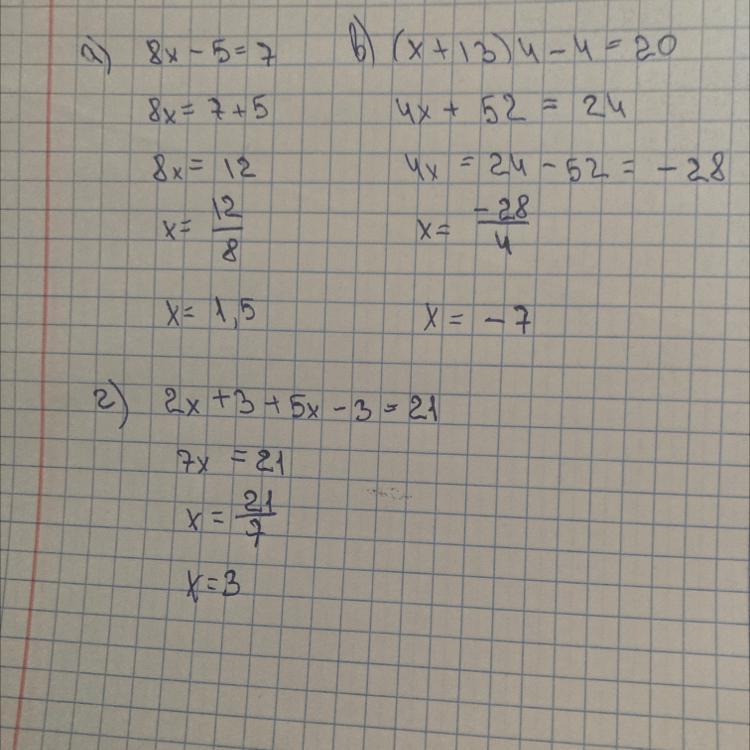 а) 8x - 5 = 7
8x = 7 + 5
8x = 12
x = 12/8
x = 1,5
в) (x + 13) 4 - 4 = 20
4x + 52 = 24
4x = 24 - 52 = - 28
x = -28/4
x = - 7
г) 2x + 3 + 5x - 3 = 21
7x = 21
x = 21/7
x = 3